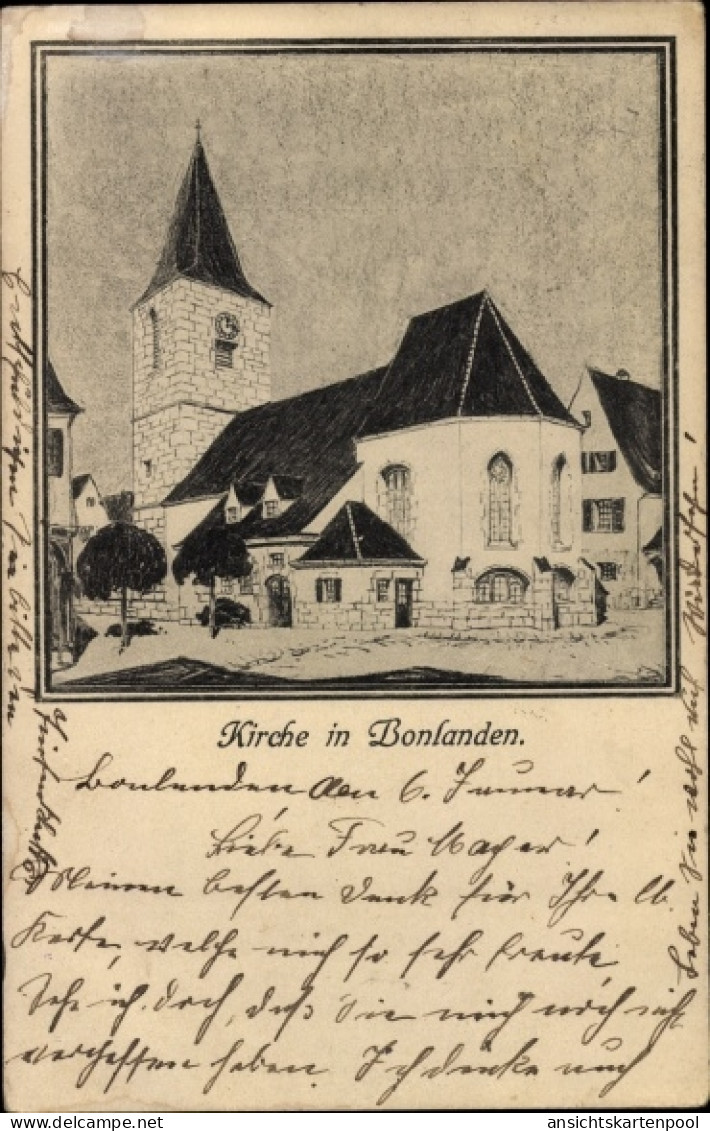 Kirche in Bonlanden.
Bonlanden den 6. Januar!
Liebe Frau Mayer!
Meinen besten Dank für Ihre lb.
Karte, welche mich so sehr freute.
Sehe ich doch, daß Sie mich noch nicht
vergessen haben. Ich denke auch
Leben Sie wohl auf Wiedersehn!
Entschuldigen Sie bitte
delcampe.net
ansichtskartenpool